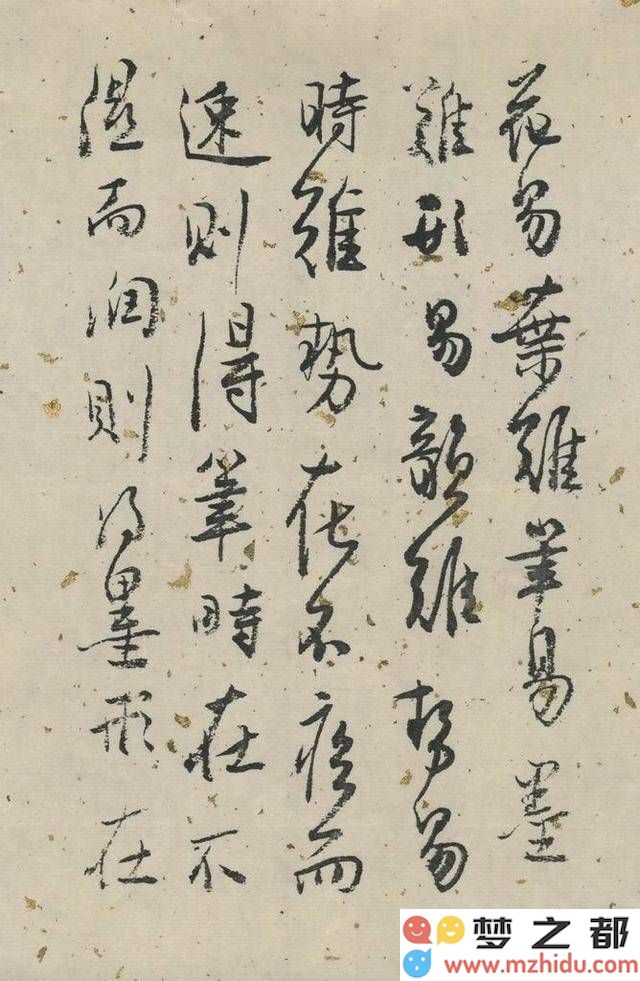 花易葉難筆易墨
難形易韻難勢易
時難勢在不疾而
速則得筆時在不
濕而潤則得墨形在
梦之都
www.mzhidu.com